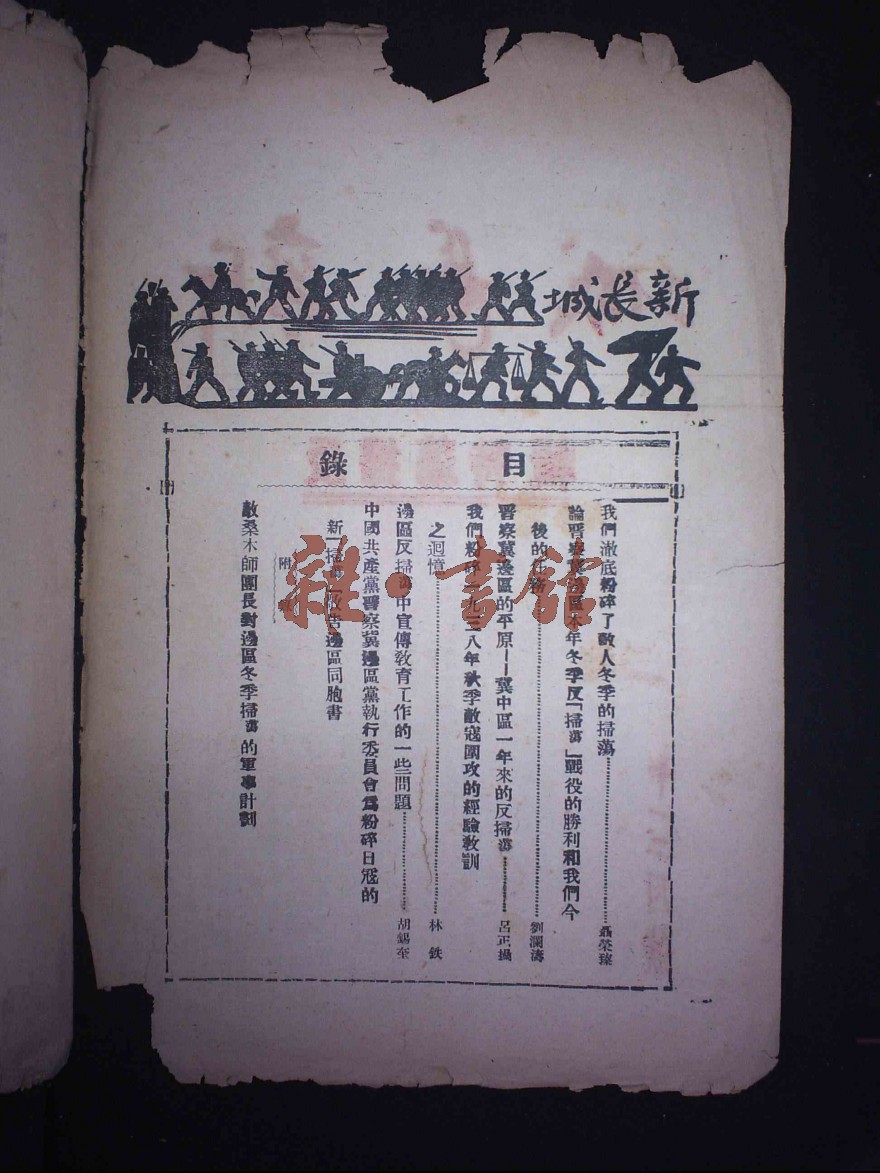 新長城
目錄
我們澈底粉碎了敵人冬季的掃蕩……聶榮臻
論晋察冀邊區本年冬季反「掃蕩」戰役的勝利和我們今
後的任務……劉瀾濤
晋察冀邊區的平原——冀中區一年來的反掃蕩……呂正操
我們粉碎一九三八年秋季敵寇圍攻的經驗敎訓
之迴憶……林鉄
邊區反掃蕩中宣傳敎育工作的一些問題……胡錫奎
中國共產黨晋察冀邊區黨執行委員會爲粉碎日寇的
新「掃蕩」敬告邊區同胞書
附
敵桑木師團長對邊區冬季掃蕩的軍事計劃
雜·書館